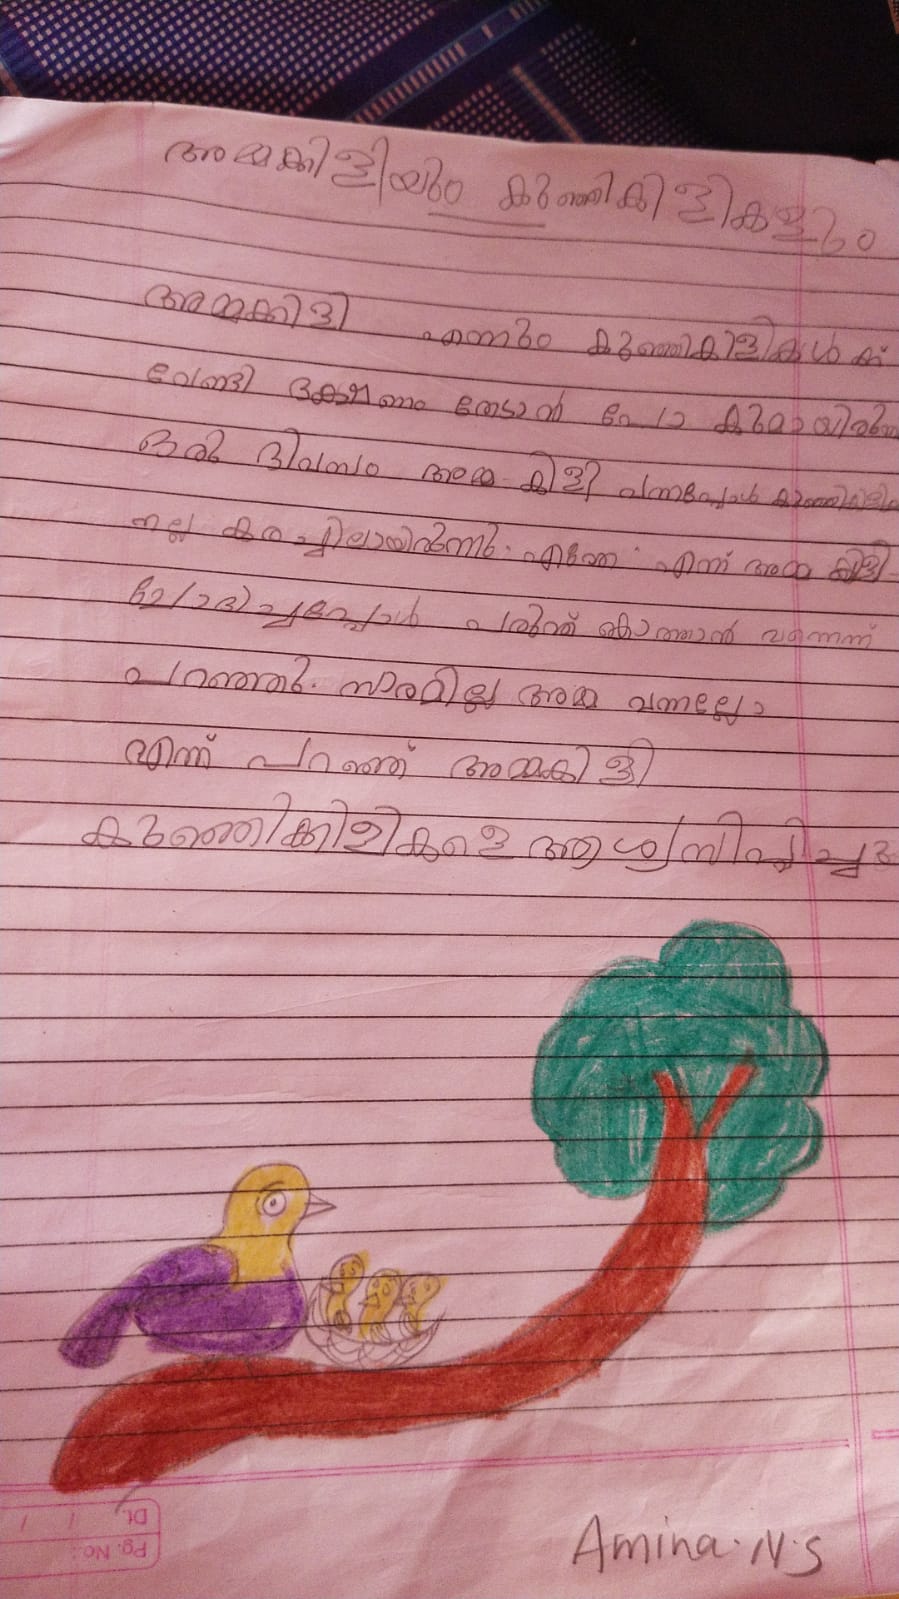 അമ്മകിളിയും കുഞ്ഞികിളികളും
അമ്മക്കിളി എന്നും കുഞ്ഞികിളികൾക്ക്
വേണ്ടി ഭക്ഷണം തേടാൻ പോ കുമായിരുന്നു
ഒരു ദിവസം അമ്മ കിളി വന്നപ്പോൾ
നല്ല കരച്ചിലായിരുന്നു. എന്തേ എന്ന് അമ്മ കിളി
ചോദിച്ചപ്പോൾ പരുന്ത് കൊത്താൻ വന്നെന്ന്
പറഞ്ഞു. സാരമില്ല അമ്മ വന്നല്ലോ
എന്ന് പറഞ്ഞ് അമ്മകിളി
കുഞ്ഞിക്കിളികളെ ആശ്വസിപ്പിച്ചു
Dt.
Pg. No.:
Amina. N. S